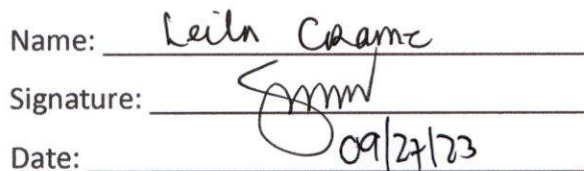 Name: Leila
Signature:
Date: 09/27/23